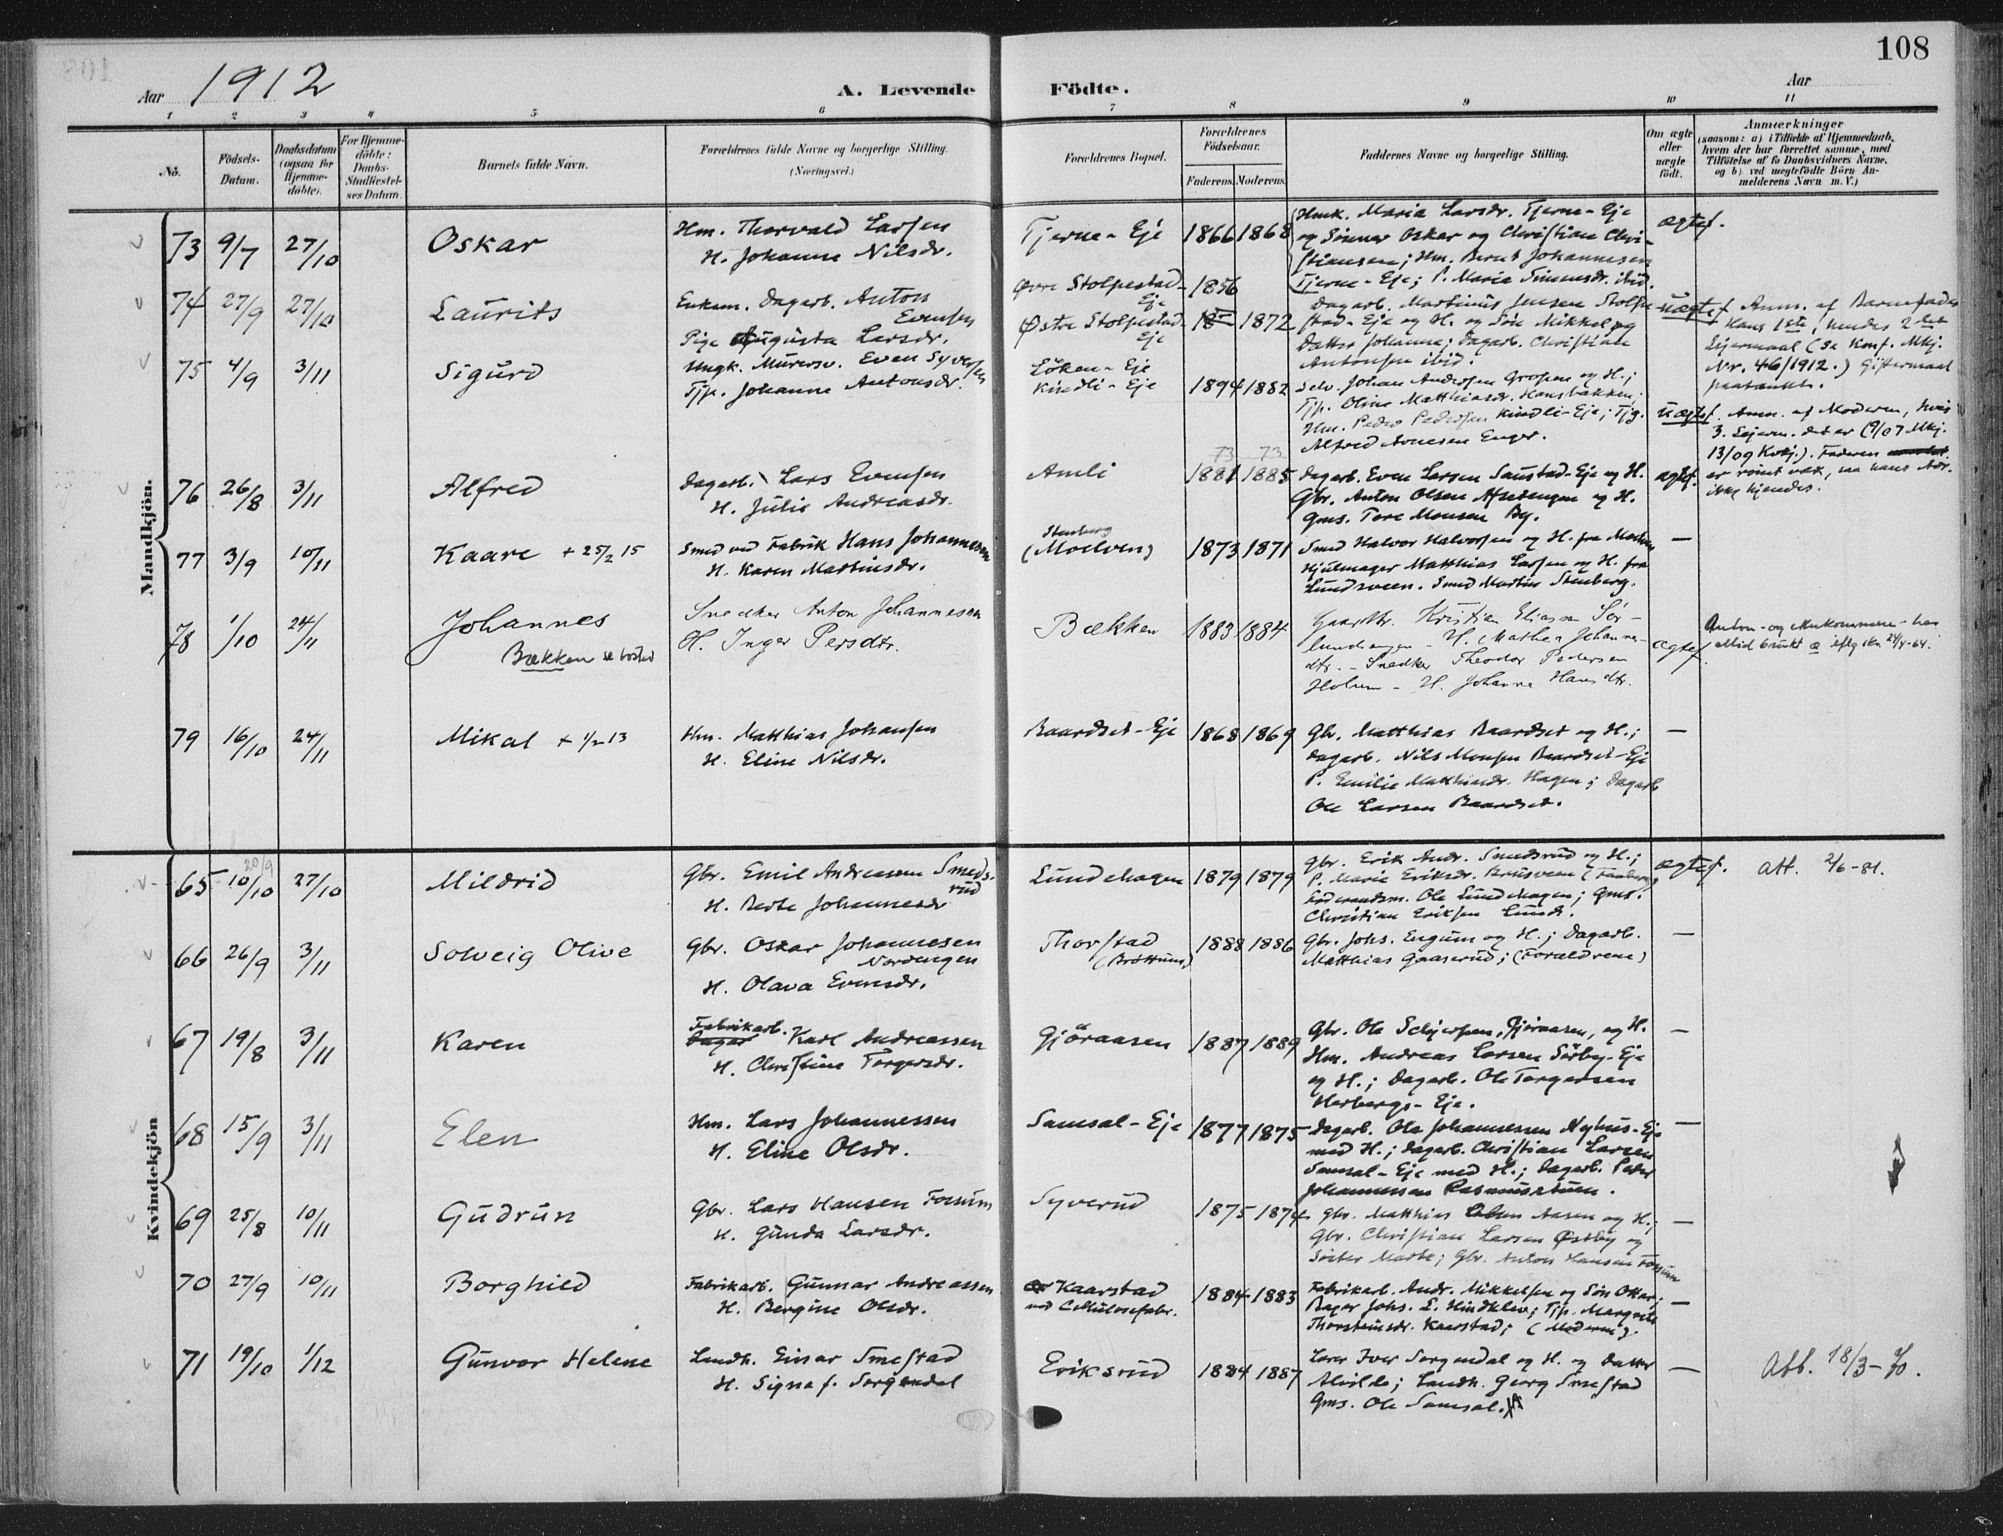 108
Aar 1912
A. Levende
Födte.
Aar
1 2 3 4 5 6 7 8 9 10 11
No.
Födsels-Datum.
Daabsdatum (ogsaa for Hjemme-döbte).
For Hjemme-döbte: Daabs-Stadfæstel-ses Datum.
Barnets fulde Navn.
Forældrenes fulde Navne og borgerlige Stilling.
(Næringsvei.)
Forældrenes Bopæl.
Forældrenes Födselsaar.
Faderens. Moderens.
Faddernes Navne og borgerlige Stilling.
Om ægte eller uægte födt.
Anmærkninger
(saasom: a) i Tilfælde af Hjemmedaab, hvem der har forrettet samme, med Tilföielse af to Daabsvidners Navne, og b) ved uegtefödte Börn An-melderens Navn m. V.)
Mandkjön.
73 9/7 27/10 Oskar
Hm. Thorvald Larsen
H. Johanne Nilsdr.
Tjerne-Eje 1866 1868
Hmk. Maria Larsdr. Tjerne-Eje
og Sönner Oskar og Christian Chri-
stiansen; Hm. Bernt Johannesen
Tjerne-Eje; P. Marie Simensdr. ibid.
ægtef.
74 27/9 27/10 Laurits
Enkem. Dagarb. Anton
Evensen
Pige Augusta Larsdr.
Øvre Stolpestad-
Eje 1856
Østre Stolpestad
Eje 1872
Dagarb. Martinus Jensen Stolpe-
stad-Eje og H. og Sön Mikkel og
Datter Johanne; Dagarb. Christian
Antonsen ibid.
uægtef. Anm. af Barnefader
Hans 1ste, hendes 2det
Lejermaal (se Konf. Mkj.
Nr. 46/1912.) Giftermaal
paatænkt.
75 4/9 3/11 Sigurd
Ungk. Murersv. Even Syversen
Tjp. Johanne Antonsdr.
Löken-Eje
Kindli-Eje 1894 1882
Selv. Johan Andersen Gropen og H.;
Tjp. Oline Matthiasdr. Hansbakken;
Hm. Peder Pedersen Kindli-Eje; Tjg.
Alfred Arnesen Enger.
Uægtef. Anm. af Moderen, hvis
3. Lejerm. det er (9/07 Mkj.
13/09 Kvkj.). Faderen
er römt væk, saa hans Adr.
ikke kjendes.
76 26/8 3/11 Alfred
Dagarb. Lars Evensen
H. Julie Andreasdr.
Amli
73 73
1881 1885
Dagarb. Even Larsen Saustad-Eje og H.
Gbr. Anton Olsen Afsetengen og H.
Gms. Tore Monsen By.
ægtef.
77 3/9 10/11 Kaare + 25/2 15
Smed ved Fabrik Hans Johannesen
H. Karen Martinsdr.
Stenberg
(Moelven) 1873 1871
Smed Halvor Halvorsen og H. fra Moelven
Hjulmager Matthias Larsen og H. fra
Lundsveen. Smed Martin Stenberg.
—
78 1/10 24/11 Johannes
Bækken se bosted
Snedker Anton Johannessen
H. Inger Persdtr.
Bækken 1883 1884
Gaardbr. Kristian Eliassen Sör-
lundengen - H. Marthea Johannes-
dtr. - Snedker Theodor Pedersen
Holum - H. Johanne Hansdtr.
ægtef.
79 16/10 24/11 Mikal + 1/2 13
Hm. Matthias Johansen
H. Eline Nilsdr.
Baardset-Eje 1868 1869
Gbr. Matthias Baardset og H.;
Dagarb. Nils Monsen Baardset-Eje
P. Emilie Matthiasdr. Hagen; Dagarb.
Ole Larsen Baardset.
—
Kvindekjön
20/9
65 10/10 27/10 Mildrid
Gbr. Emil Andreassen Smeds-
rud
H. Berte Johannesdr
Lundehagen 1879 1879
Gbr. Erik Andr. Smedsrud og H.;
P. Marie Eriksdr. Brusveen
Föderaadsm. Ole Lundehagen; Gms.
Christian Eriksen Lunde.
ægtef. Att. 2/6-81.
66 26/9 3/11 Solveig Olive
Gbr. Oskar Johannesen
Nordengen
H. Olava Evensdr.
Thorstad
(Bröttum) 1888 1886
Gbr. Johs. Engum og H.; Dagarb.
Matthias Gaaserud; (Forældrene)
—
67 19/8 3/11 Karen
Fabrikarb.
Dagar Karl Andreassen
H. Christine Torgersdr.
Gjöraasen 1887 1889
Gbr. Ole Schjerpen, Gjöraasen, og H.
Hm. Andreas Larsen Sörby-Eje
og H.; Dagarb. Ole Torgersen
Herbergs-Eje.
—
68 15/9 3/11 Elen
Hm. Lars Johannessen
H. Eline Olsdr.
Samsal-Eje 1877 1875
Dagarb. Ole Johannessen Nyhus-Eje
med H.; Dagarb. Christian Larsen
Samsal-Eje med H.; Dagarb. Peder
Johannessen Rasmusstuen.
—
69 25/8 10/11 Gudrun
Gbr. Lars Hansen Fossum
H. Gunda Larsdr.
Syverud 1875 1874
Gbr. Matthias Aasen og H.;
Gbr. Christian Larsen Östby og
Söster Marte; Gbr. Anton Hansen Fossum
—
70 27/9 10/11 Borghild
Fabrikarb. Gunnar Andreassen
H. Bergine Olsdr.
Kaarstad
ved Cellulosefabr. 1884 1883
Fabrikarb. Andr. Mikkelsen og Sön Oskar;
Bager Johs. L. Hindklev; Tjp. Margrete
Thorsteinsdr. Kaarstad; (Moderen).
—
71 19/10 1/12 Gunvor Helene
Landh. Einar Smestad
H. Signe f. Sorgendal
Eriksrud 1884 1887
Lærer Iver Sorgendal og H. og Datter
Alvilde; Landh. Georg Smestad
Gms. Ole Samsal.
—
Att. 18/3-70.